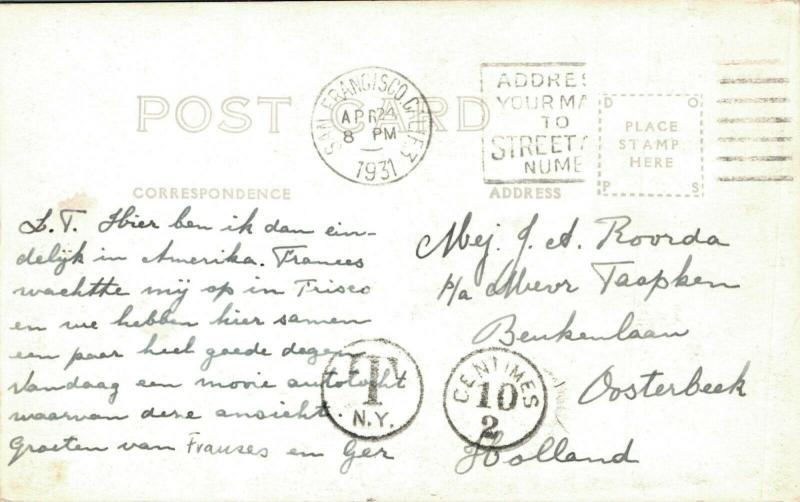 POST CARD
SAN FRANCISCO, CALIF. 3
APR 24
8 PM
1931
ADDRES
YOUR MA
TO
STREET A
NUMB
D O
PLACE
STAMP
HERE
P S
CORRESPONDENCE
ADDRESS
L. T. Hier ben ik dan ein-
delijk in Amerika. Frances
wachtte mij op in Frisco
en we hebben hier samen
een paar heel goede dagen
Vandaag een mooie autotocht
waarvan deze ansicht.
Groeten van Franses en Ger
Mej. J. A. Roorda
p/a Mevr Taapken
Beukenlaan
Oosterbeek
Holland
T
N.Y.
CENTIMES
10
2